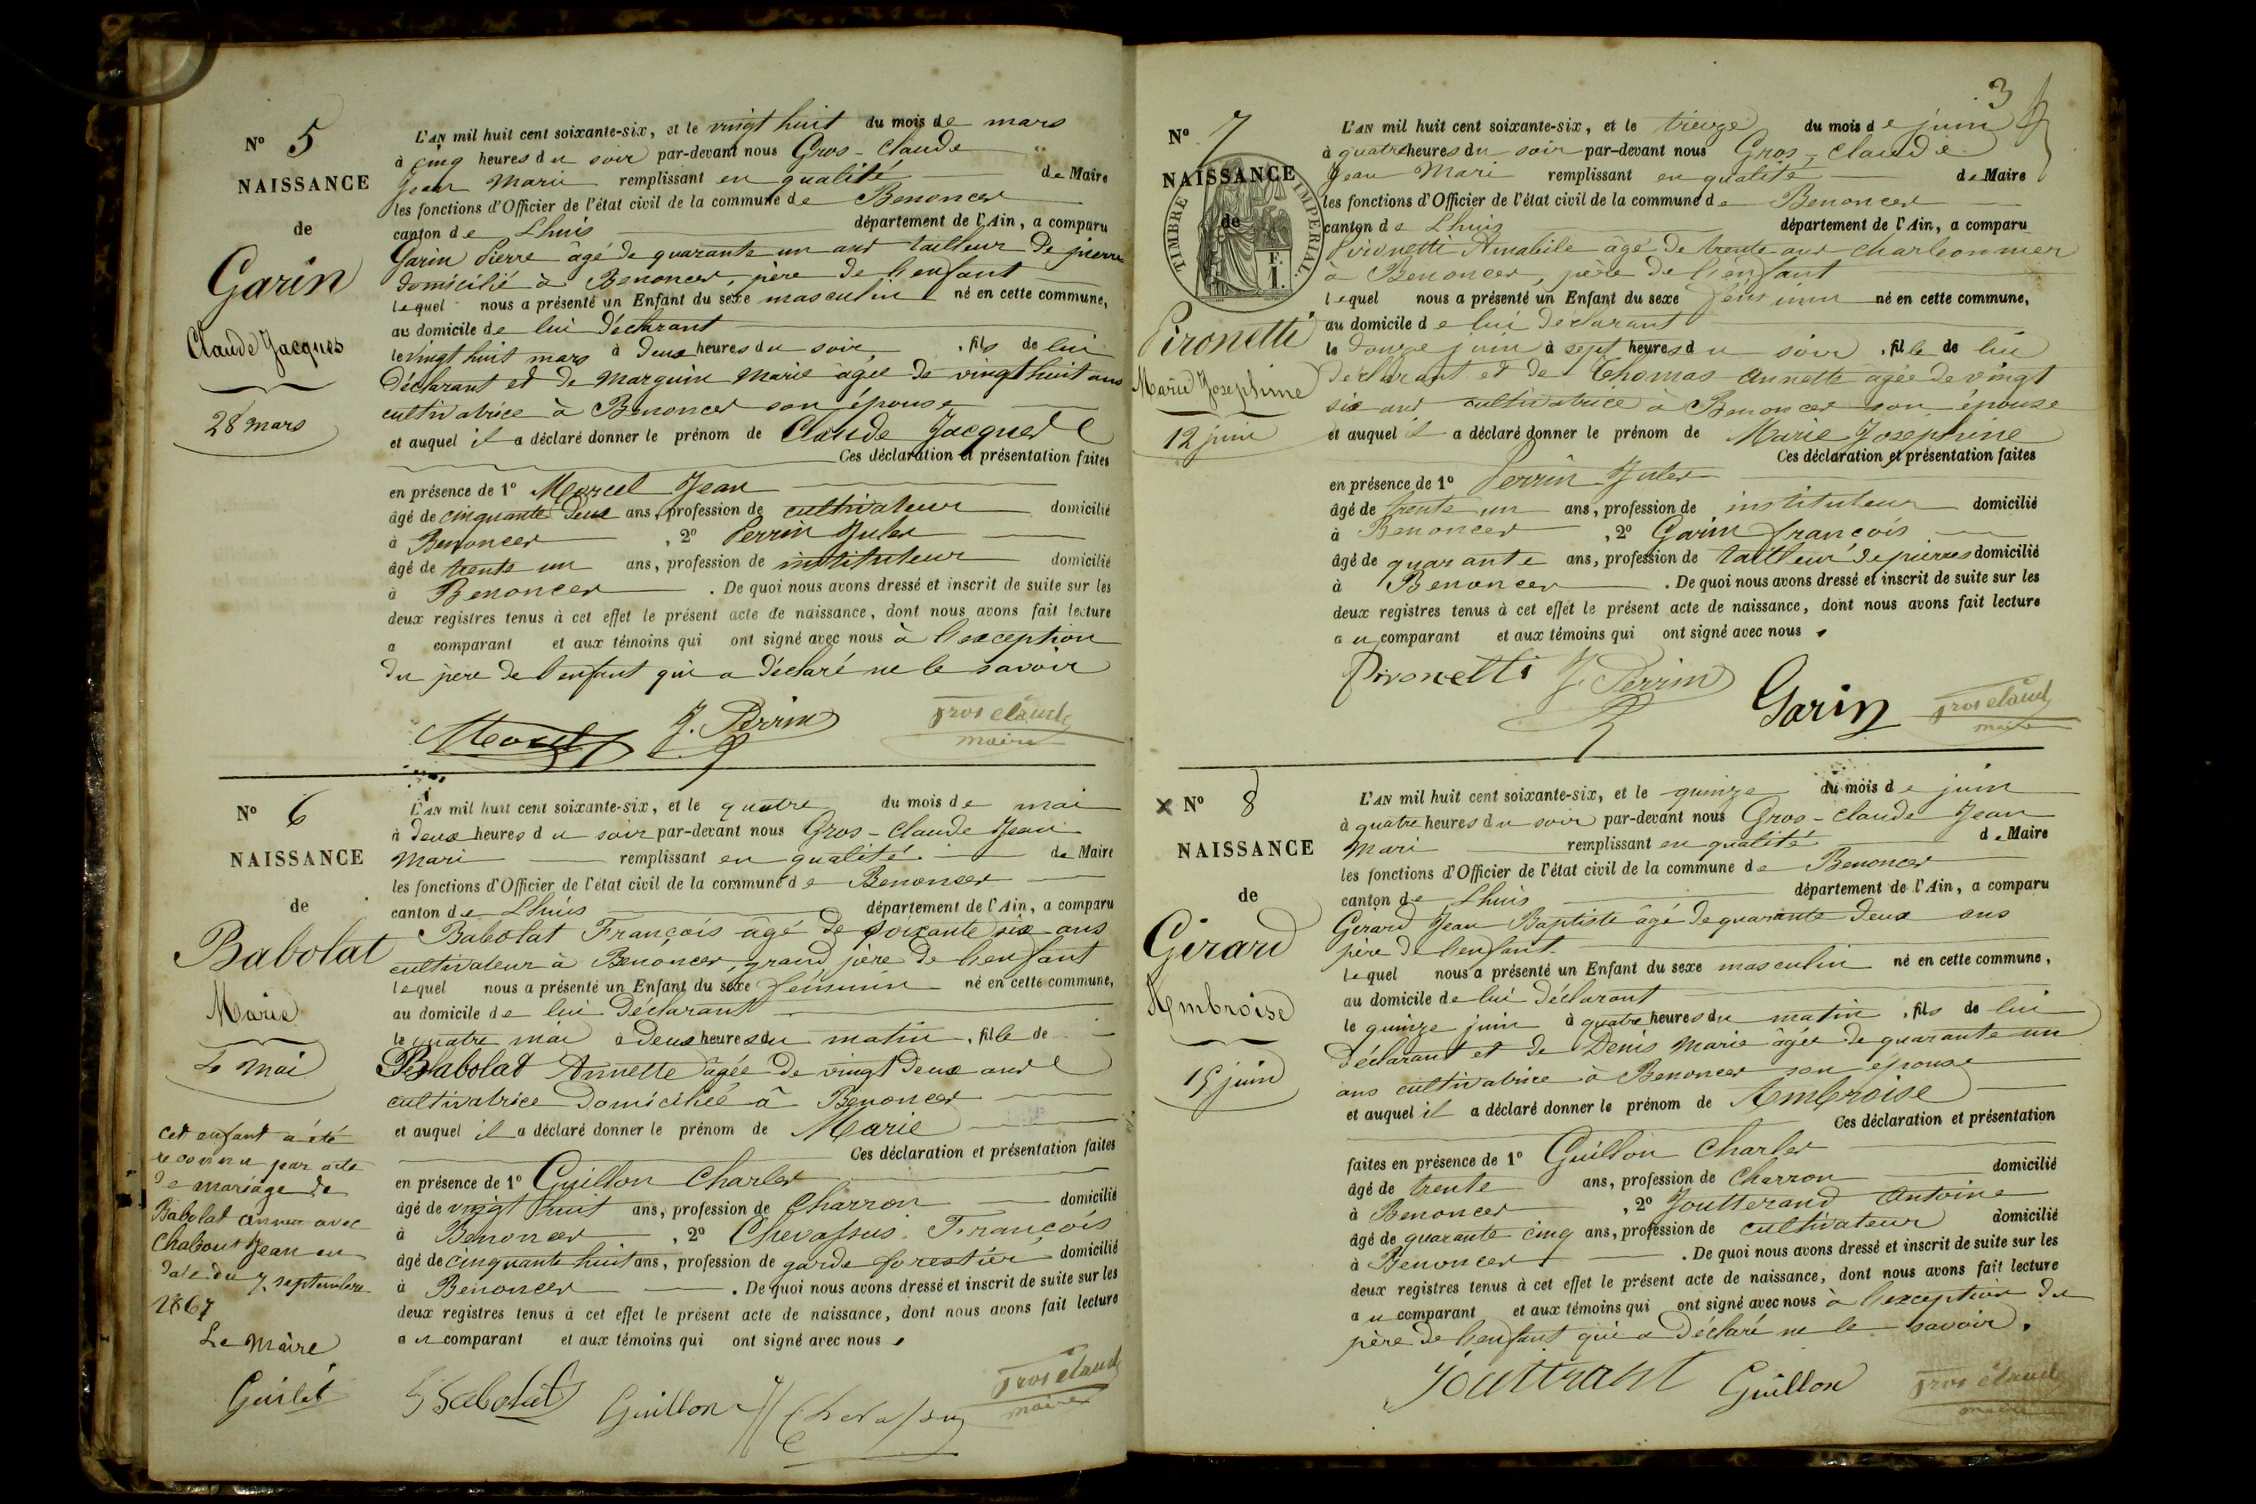 N° 5
NAISSANCE
de
Garin
Claude Jacques
28 mars
L'AN mil huit cent soixante-six, et le vingt huit du mois de mars
à cinq heures du soir par-devant nous Gros-Claude
Jean Marie remplissant en qualité de Maire
les fonctions d'Officier de l'état civil de la commune de Benonces
canton de Lhuis département de l'Ain, a comparu
Garin Pierre âgé de quarante un ans tailleur de pierre
domicilié à Benonces, père de l'enfant
lequel nous a présenté un Enfant du sexe masculin né en cette commune,
au domicile de lui déclarant
le vingt huit mars à deux heures du soir, fils de lui
déclarant et de Marguin Marie âgée de vingt huit ans
cultivatrice à Benonces son épouse
et auquel il a déclaré donner le prénom de Claude Jacques
Ces déclaration et présentation faites
en présence de 1° Marcel Jean
âgé de cinquante deux ans, profession de cultivateur domicilié
à Benonces, 2° Perrin Jules
âgé de trente un ans, profession de instituteur domicilié
à Benonces. De quoi nous avons dressé et inscrit de suite sur les
deux registres tenus à cet effet le présent acte de naissance, dont nous avons fait lecture
a comparant et aux témoins qui ont signé avec nous à l'exception
du père de l'enfant qui a déclaré ne le savoir
J. Perrin Gros claude
maire
N° 6
NAISSANCE
de
Babolat
Marie
4 mai
cet enfant a été
reconnu par acte
de mariage de
Babolat Anna avec
Chabout Jean en
date du 7 septembre
1867
Le Maire
L'AN mil huit cent soixante-six, et le quatre du mois de mai
à deux heures du soir par-devant nous Gros-Claude Jean
Mari remplissant en qualité de Maire
les fonctions d'Officier de l'état civil de la commune de Benonces
canton de Lhuis département de l'Ain, a comparu
Babolat François âgé de soixante six ans
cultivateur à Benonces, grand père de l'enfant
lequel nous a présenté un Enfant du sexe féminin né en cette commune,
au domicile de lui déclarant
le quatre mai à deux heures du matin, fille de
Babolat Annette âgée de vingt deux ans
cultivatrice domiciliée à Benonces
et auquel il a déclaré donner le prénom de Marie
Ces déclaration et présentation faites
en présence de 1° Guillon Charles
âgé de vingt huit ans, profession de Charron domicilié
à Benonces, 2° Chevassus François
âgé de cinquante huit ans, profession de garde forestier domicilié
à Benonces. De quoi nous avons dressé et inscrit de suite sur les
deux registres tenus à cet effet le présent acte de naissance, dont nous avons fait lecture
au comparant et aux témoins qui ont signé avec nous.
Babolat Guillon Chevassus Gros claude
maire
3
N° 7
NAISSANCE
de
TIMBRE IMPERIAL.
1 F.
Pironetti
Marie Josephine
12 juin
L'AN mil huit cent soixante-six, et le treize du mois de juin
à quatre heures du soir par-devant nous Gros-Claude
Jean Mari remplissant en qualité de Maire
les fonctions d'Officier de l'état civil de la commune de Benonces
canton de Lhuis département de l'Ain, a comparu
Pironetti Amabile âgé de trente ans charbonnier
à Benonces, père de l'enfant
lequel nous a présenté un Enfant du sexe féminin né en cette commune,
au domicile de lui déclarant
le douze juin à sept heures du soir, fille de lui
déclarant et de Thomas Annette âgée de vingt
six ans cultivatrice à Benonces son épouse
et auquel il a déclaré donner le prénom de Marie Josephine
Ces déclaration et présentation faites
en présence de 1° Perrin Jules
âgé de trente un ans, profession de instituteur domicilié
à Benonces, 2° Garin françois
âgé de quarante ans, profession de tailleur de pierres domicilié
à Benonces. De quoi nous avons dressé et inscrit de suite sur les
deux registres tenus à cet effet le présent acte de naissance, dont nous avons fait lecture
au comparant et aux témoins qui ont signé avec nous.
Pironetti J. Perrin Garin Gros claude
maire
N° 8
NAISSANCE
de
Girard
Ambroise
15 juin
L'AN mil huit cent soixante-six, et le quinze du mois de juin
à quatre heures du soir par-devant nous Gros-Claude Jean
Mari remplissant en qualité de Maire
les fonctions d'Officier de l'état civil de la commune de Benonces
canton de Lhuis département de l'Ain, a comparu
Girard Jean Baptiste âgé de quarante deux ans
père de l'enfant
lequel nous a présenté un Enfant du sexe masculin né en cette commune,
au domicile de lui déclarant
le quinze juin à quatre heures du matin, fils de lui
déclarant et de Denis Marie âgée de quarante un
ans cultivatrice à Benonces son épouse
et auquel il a déclaré donner le prénom de Ambroise
Ces déclaration et présentation
faites en présence de 1° Guillon Charles
âgé de trente ans, profession de Charron domicilié
à Benonces, 2° Joutterand Antoine
âgé de quarante cinq ans, profession de cultivateur domicilié
à Benonces. De quoi nous avons dressé et inscrit de suite sur les
deux registres tenus à cet effet le présent acte de naissance, dont nous avons fait lecture
au comparant et aux témoins qui ont signé avec nous à l'exception du
père de l'enfant qui a déclaré ne le savoir.
Jouttrant Guillon Gros claude
maire